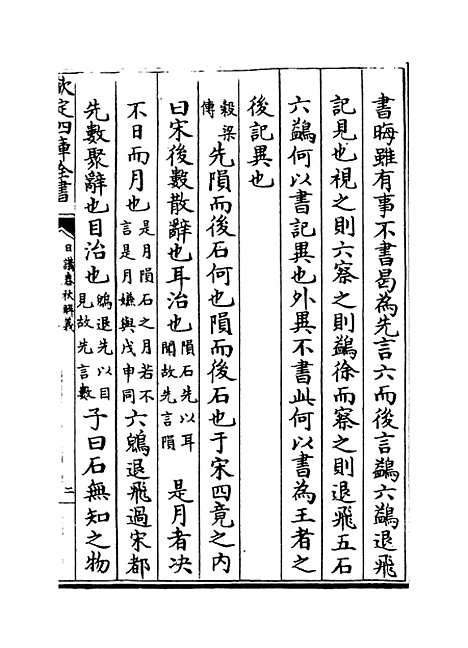 書晦雖有事不書曷為先言六而後言鷁六鷁退飛
記見也視之則六察之則鷁徐而察之則退飛五石
六鷁何以書記異也外異不書此何以書為王者之
後記異也
穀梁傳先隕而後石何也隕而後石也于宋四竟之內
曰宋後數散辭也耳治也隕石先以耳聞故先言隕是月者決
不日而月也是月隕石之月若不言是月嫌與戊申同六鶂退飛過宋都
先數聚辭也目治也鶂退先以目見故先言數子曰石無知之物
欽定四庫全書
日講春秋解義
二